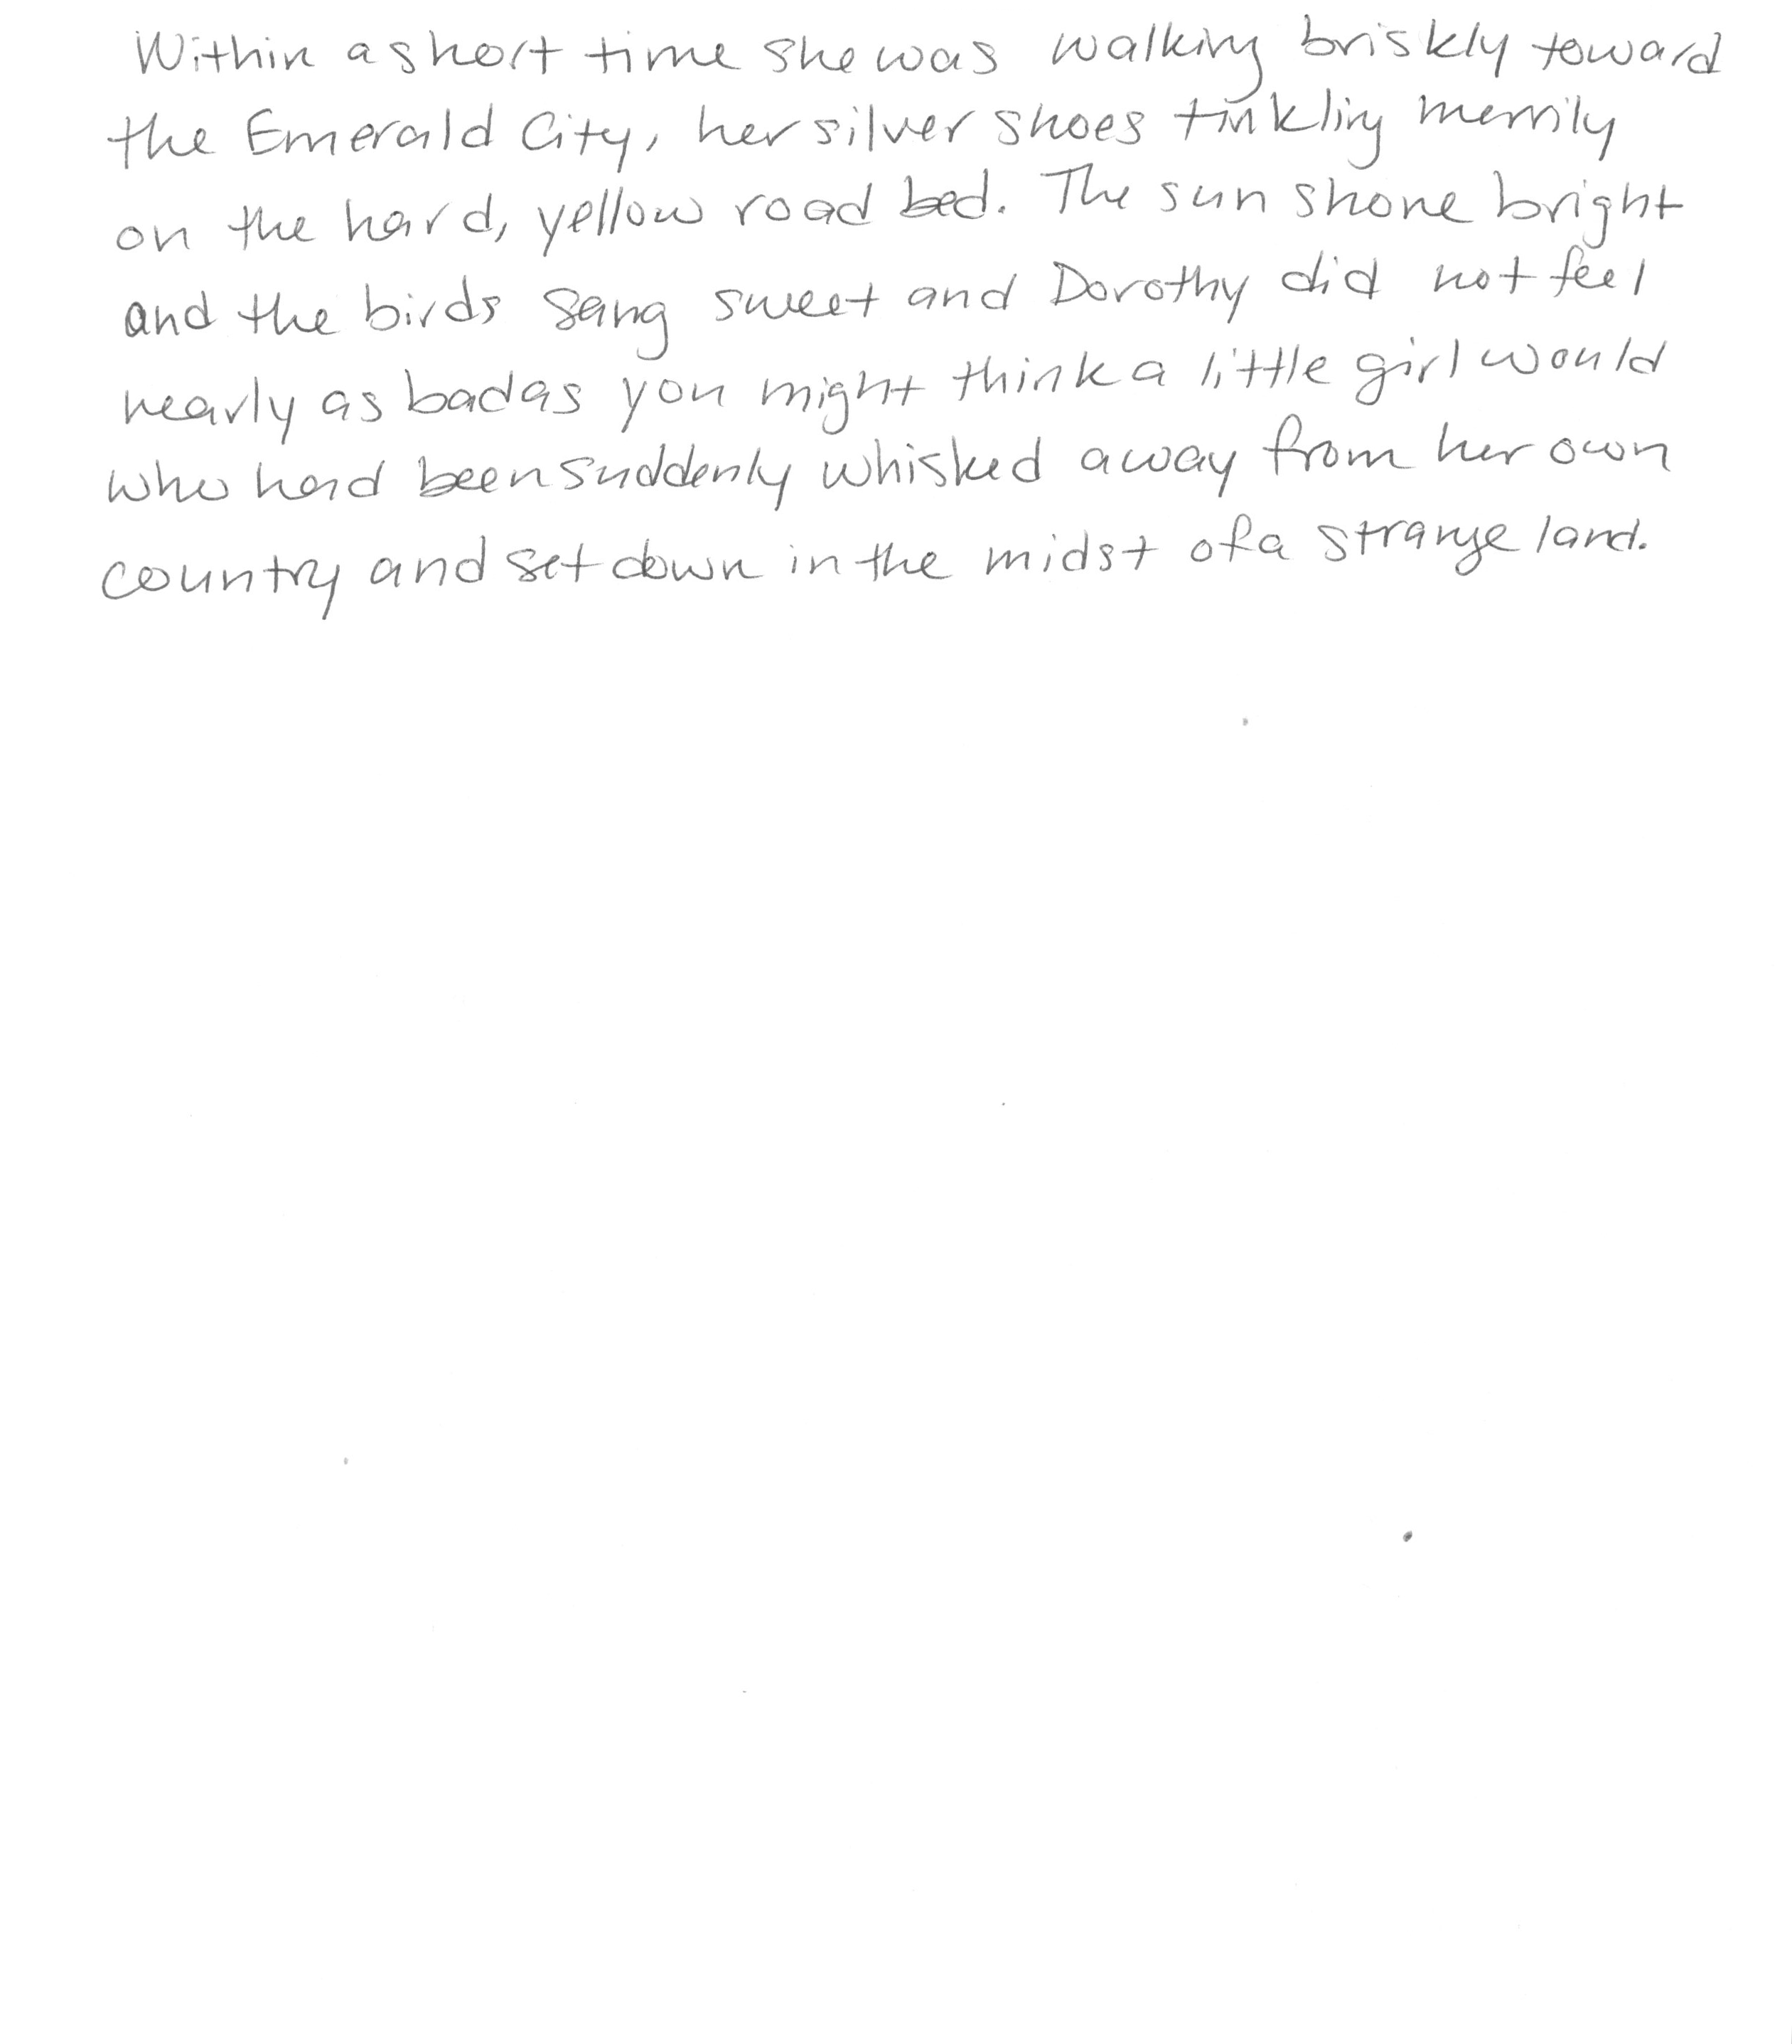 Within a short time she was walking briskly toward
the Emerald City, her silver shoes tinkling merrily
on the hard, yellow road bed. The sun shone bright
and the birds sang sweet and Dorothy did not feel
nearly as bad as you might think a little girl would
who had been suddenly whisked away from her own
country and set down in the midst of a strange land.